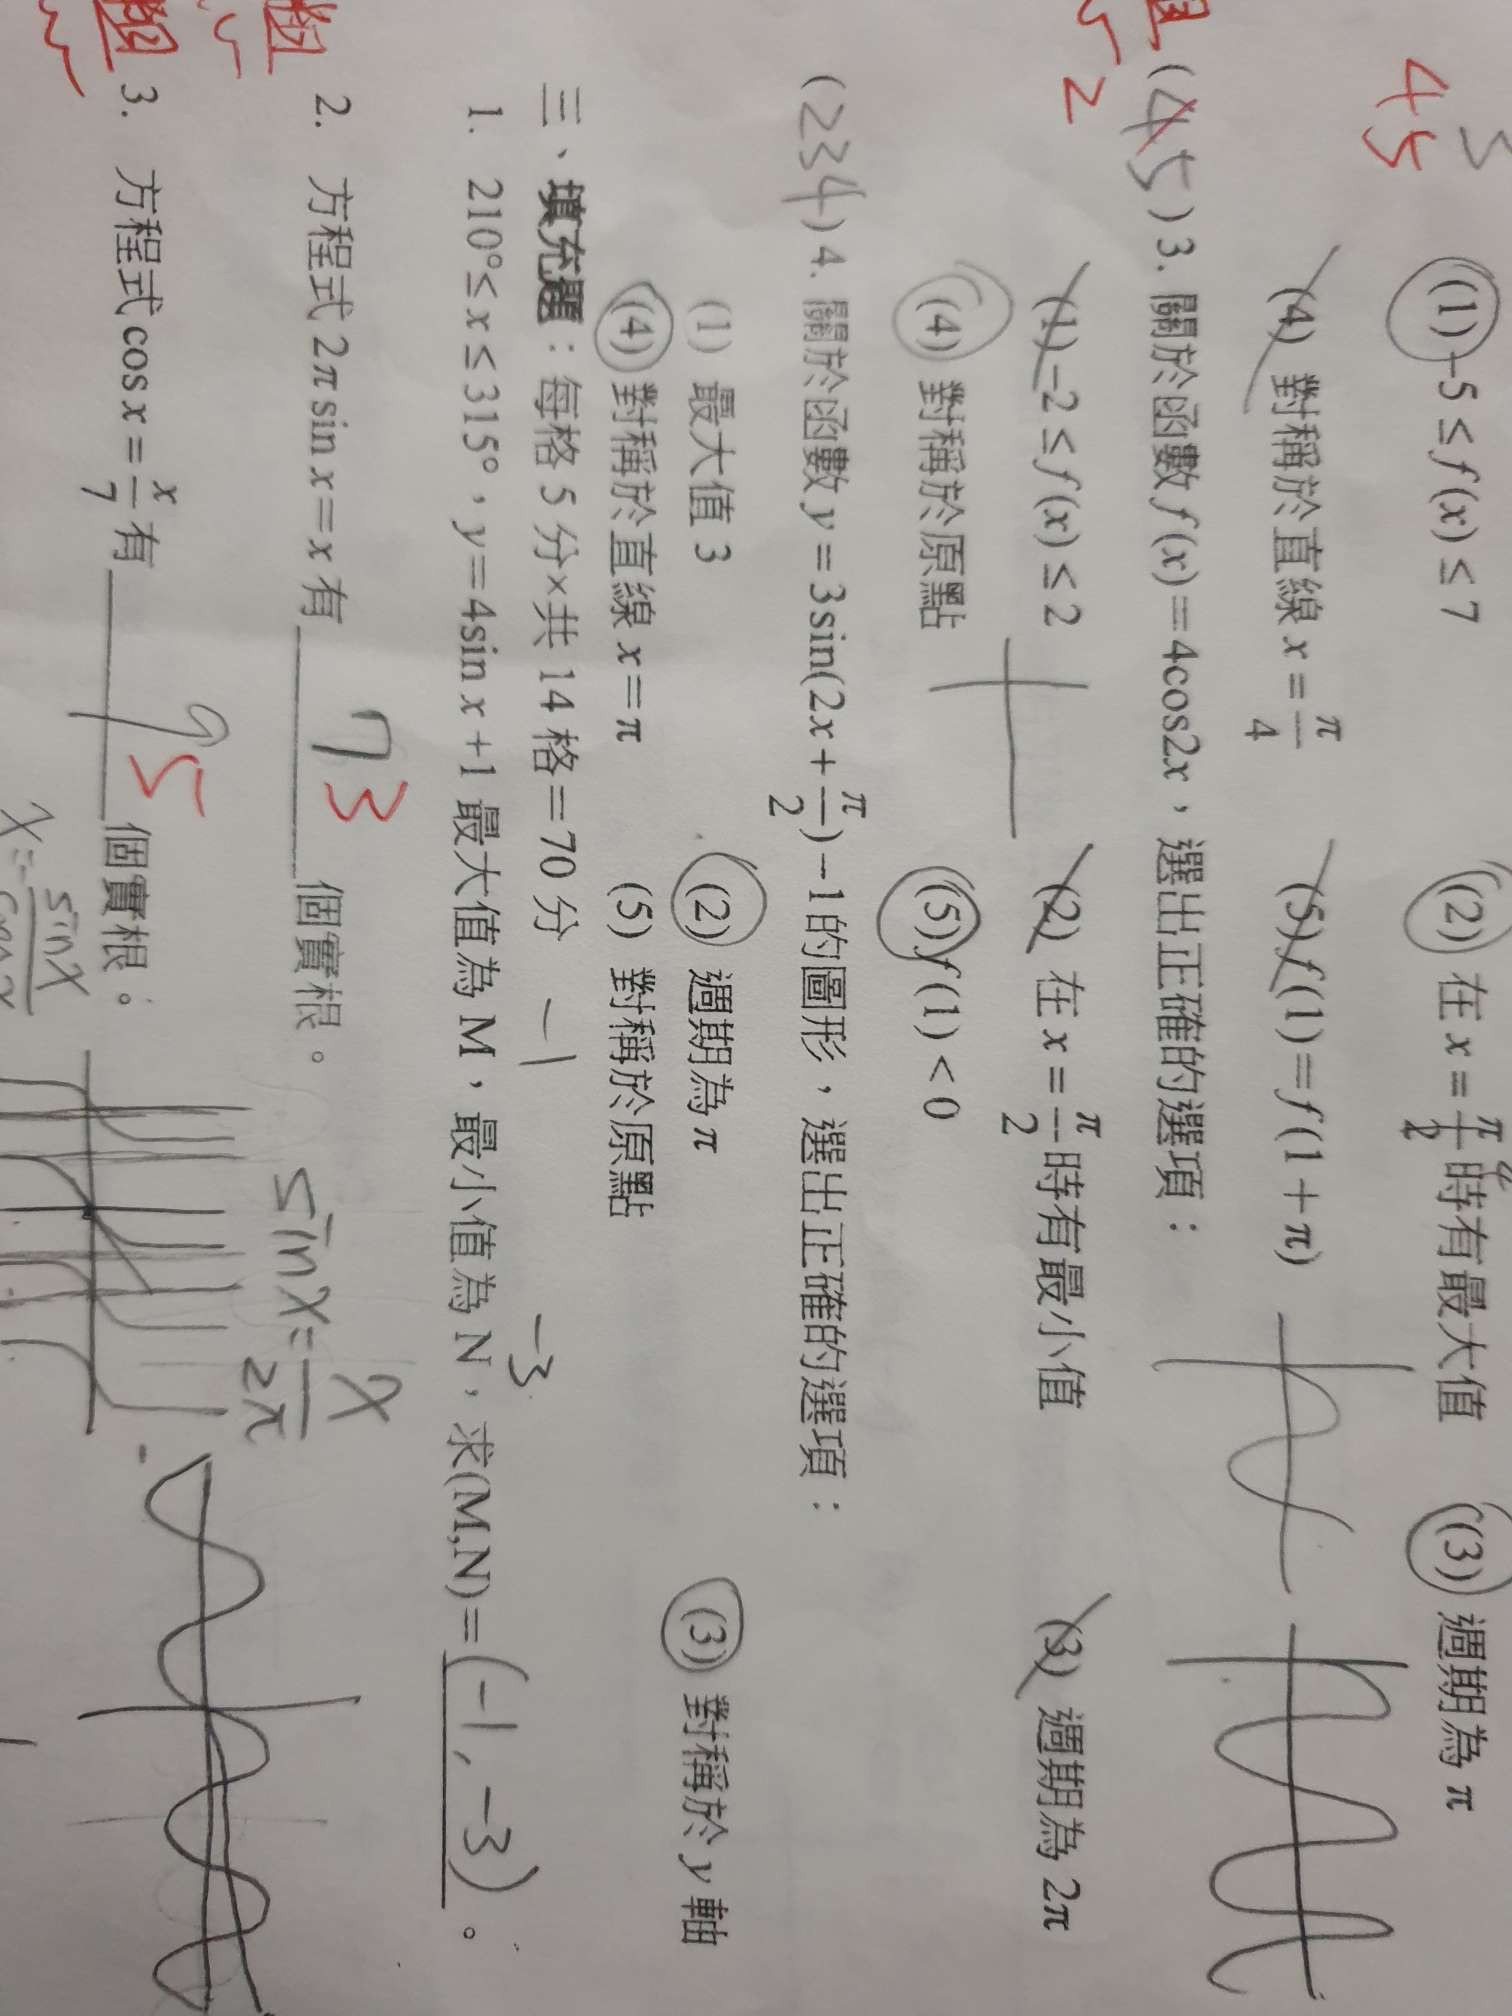 3
45
(1) -5 ≤ f(x) ≤ 7 (2) 在 x = π/2 時有最大值 (3) 週期為 π
(4) 對稱於直線 x = π/4 (5) f(1) = f(1 + π)
(45) 3. 關於函數 f(x) = 4cos2x,選出正確的選項:
2
(1) -2 ≤ f(x) ≤ 2 (2) 在 x = π/2 時有最小值 (3) 週期為 2π
(4) 對稱於原點 (5) f(1) < 0
(234) 4. 關於函數 y = 3sin(2x + π/2) - 1 的圖形,選出正確的選項:
(1) 最大值 3 (2) 週期為 π (3) 對稱於 y 軸
(4) 對稱於直線 x = π (5) 對稱於原點
三、填充題:每格 5 分×共 14 格=70 分
-1 -3
1. 210° ≤ x ≤ 315°,y = 4sin x + 1 最大值為 M,最小值為 N,求(M,N)= (-1, -3) 。
2. 方程式 2π sin x = x 有 7 3 個實根。
sinx = x/2π
3. 方程式 cos x = x/7 有 5 個實根。